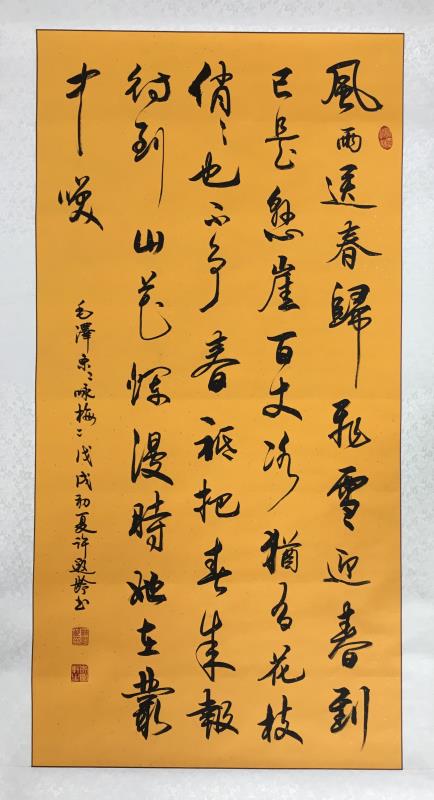 風雨送春歸飛雪迎春到
已是懸崖百丈冰猶有花枝
俏〻也不争春祗把春来報
待到山花爛漫時她在叢
中笑
毛澤東〻咏梅〻戊戌初夏许齡书